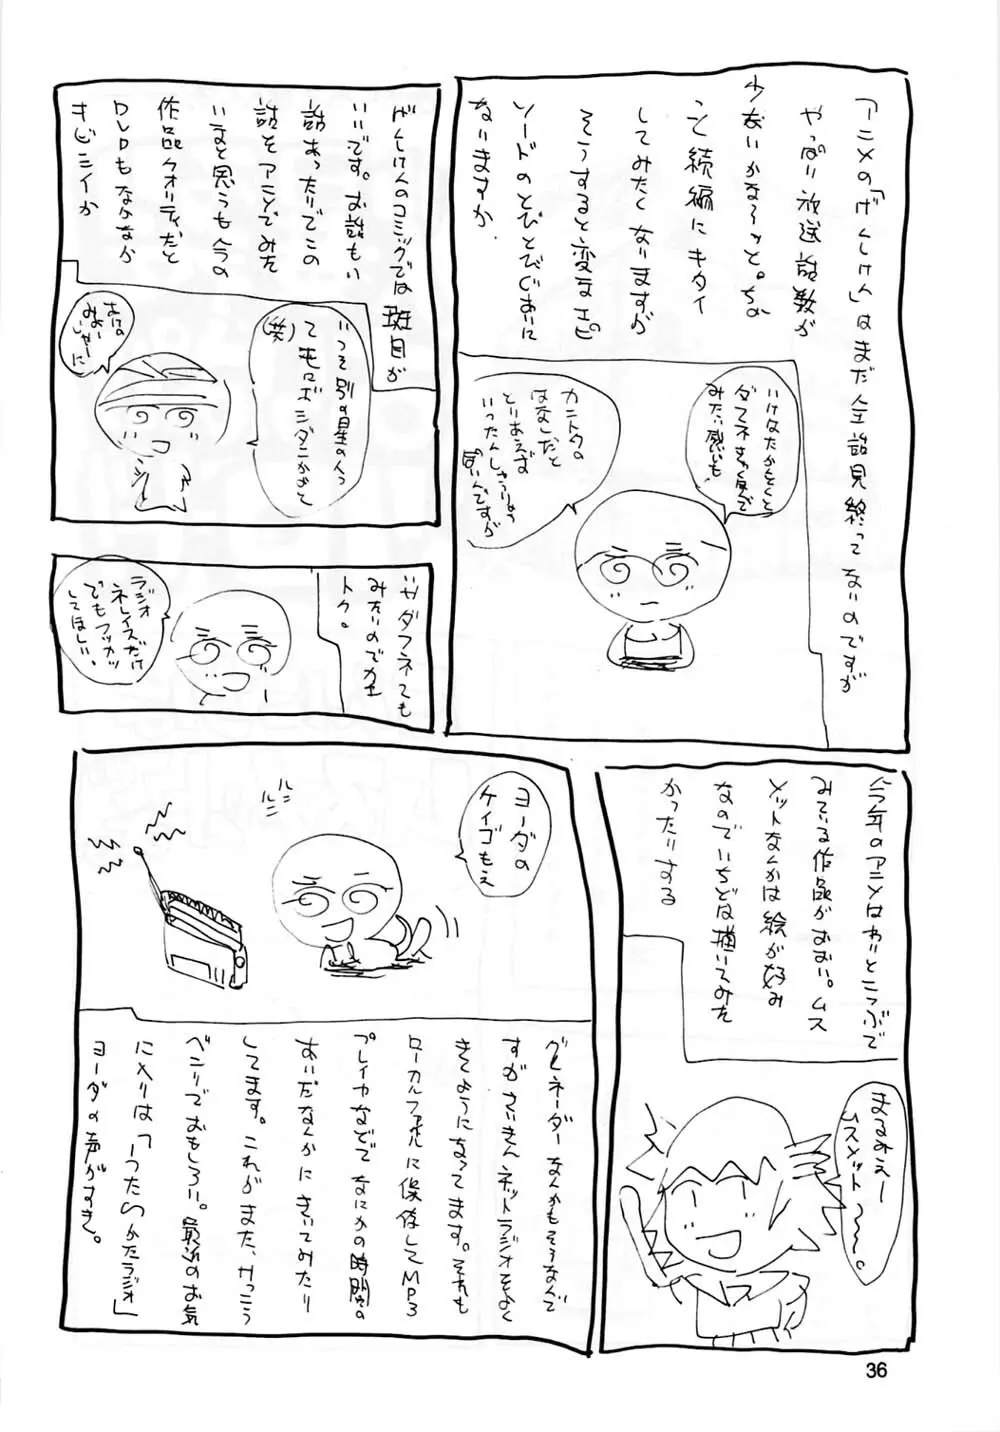 アニメの「げんしけん」はまだ全話見終ってないのですが
やっぱり放送話数が
少ないかな~ッと。ちょ
っと続編にキタイ
してみたくなりますが
そうすると変なエピ
ソードのとびとびぐあいに
ないますか
みたい感じも
カントクの
はなしだと
とりあえず
いったんしゅうりょう
ぽいんですが
げんしけんのコミックでは斑目が
いいです。お話もい
話あったりでこの
話をアニメでみた
いまと思うも今の
作品クオリティだと
DVDもなかなか
キビシイか
いっそ別の星の人っ
(笑)
いやダフネても
みたいのでカエ
トク。
ラジオ
ネレイスだけ
でもフッカツ
してほしい。
今年のアニメはわりとこつぶで
みている作品がおおい。ムス
メットなんかは絵が好み
なのでいちどは描いてみた
かったりする
まるみえー
ムスメット~~。
ヨーダの
ケイゴもえ
グレネーダーなんかもそうなんで
すがさいきんネットラジオをよく
きくようになってます。それも
ローカルファイルに保存してMP3
プレイヤなどでなにかの時間の
あいだなんかにきいてみたり
してます。これがまた、けっこう
ベンリでおもしろい。最近のお気
に入りは「うたらじ」
ヨーダの声がすき。
36